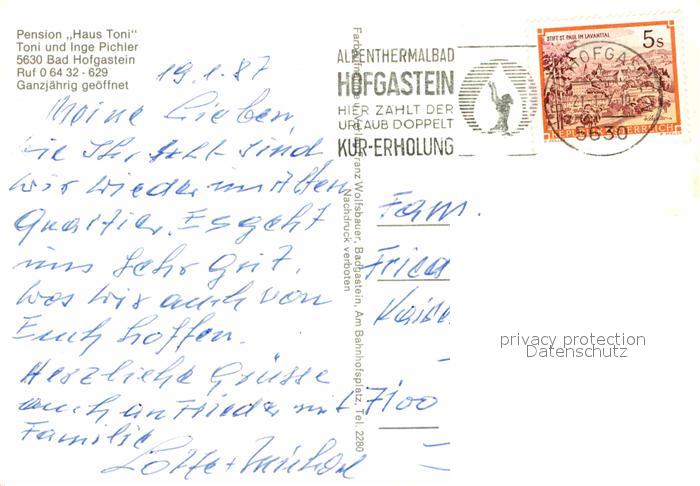 Pension „Haus Toni"
Toni und Inge Pichler
5630 Bad Hofgastein
Ruf 0 64 32 - 629
Ganzjährig geöffnet
19.1.87
Meine Lieben,
wie Ihr seht sind
wir wieder im Alten
Quartier. Es geht
uns sehr gut,
was wir auch von
Euch hoffen.
Herzliche Grüsse
auch an Frieder mit
Familie
Lotte +
Wolfsbauer, Badgastein, Am Bahnhofsplatz, Tel. 2280
Nachdruck verboten
ALPENTHERMALBAD
HOFGASTEIN
HIER ZÄHLT DER
URLAUB DOPPELT
KUR-ERHOLUNG
STIFT ST. PAUL IM LAVANTTAL
5 S
REPUBLIK ÖSTERREICH
HOFGAST
5630
Fam.
Frieda
7100
privacy protection
Datenschutz